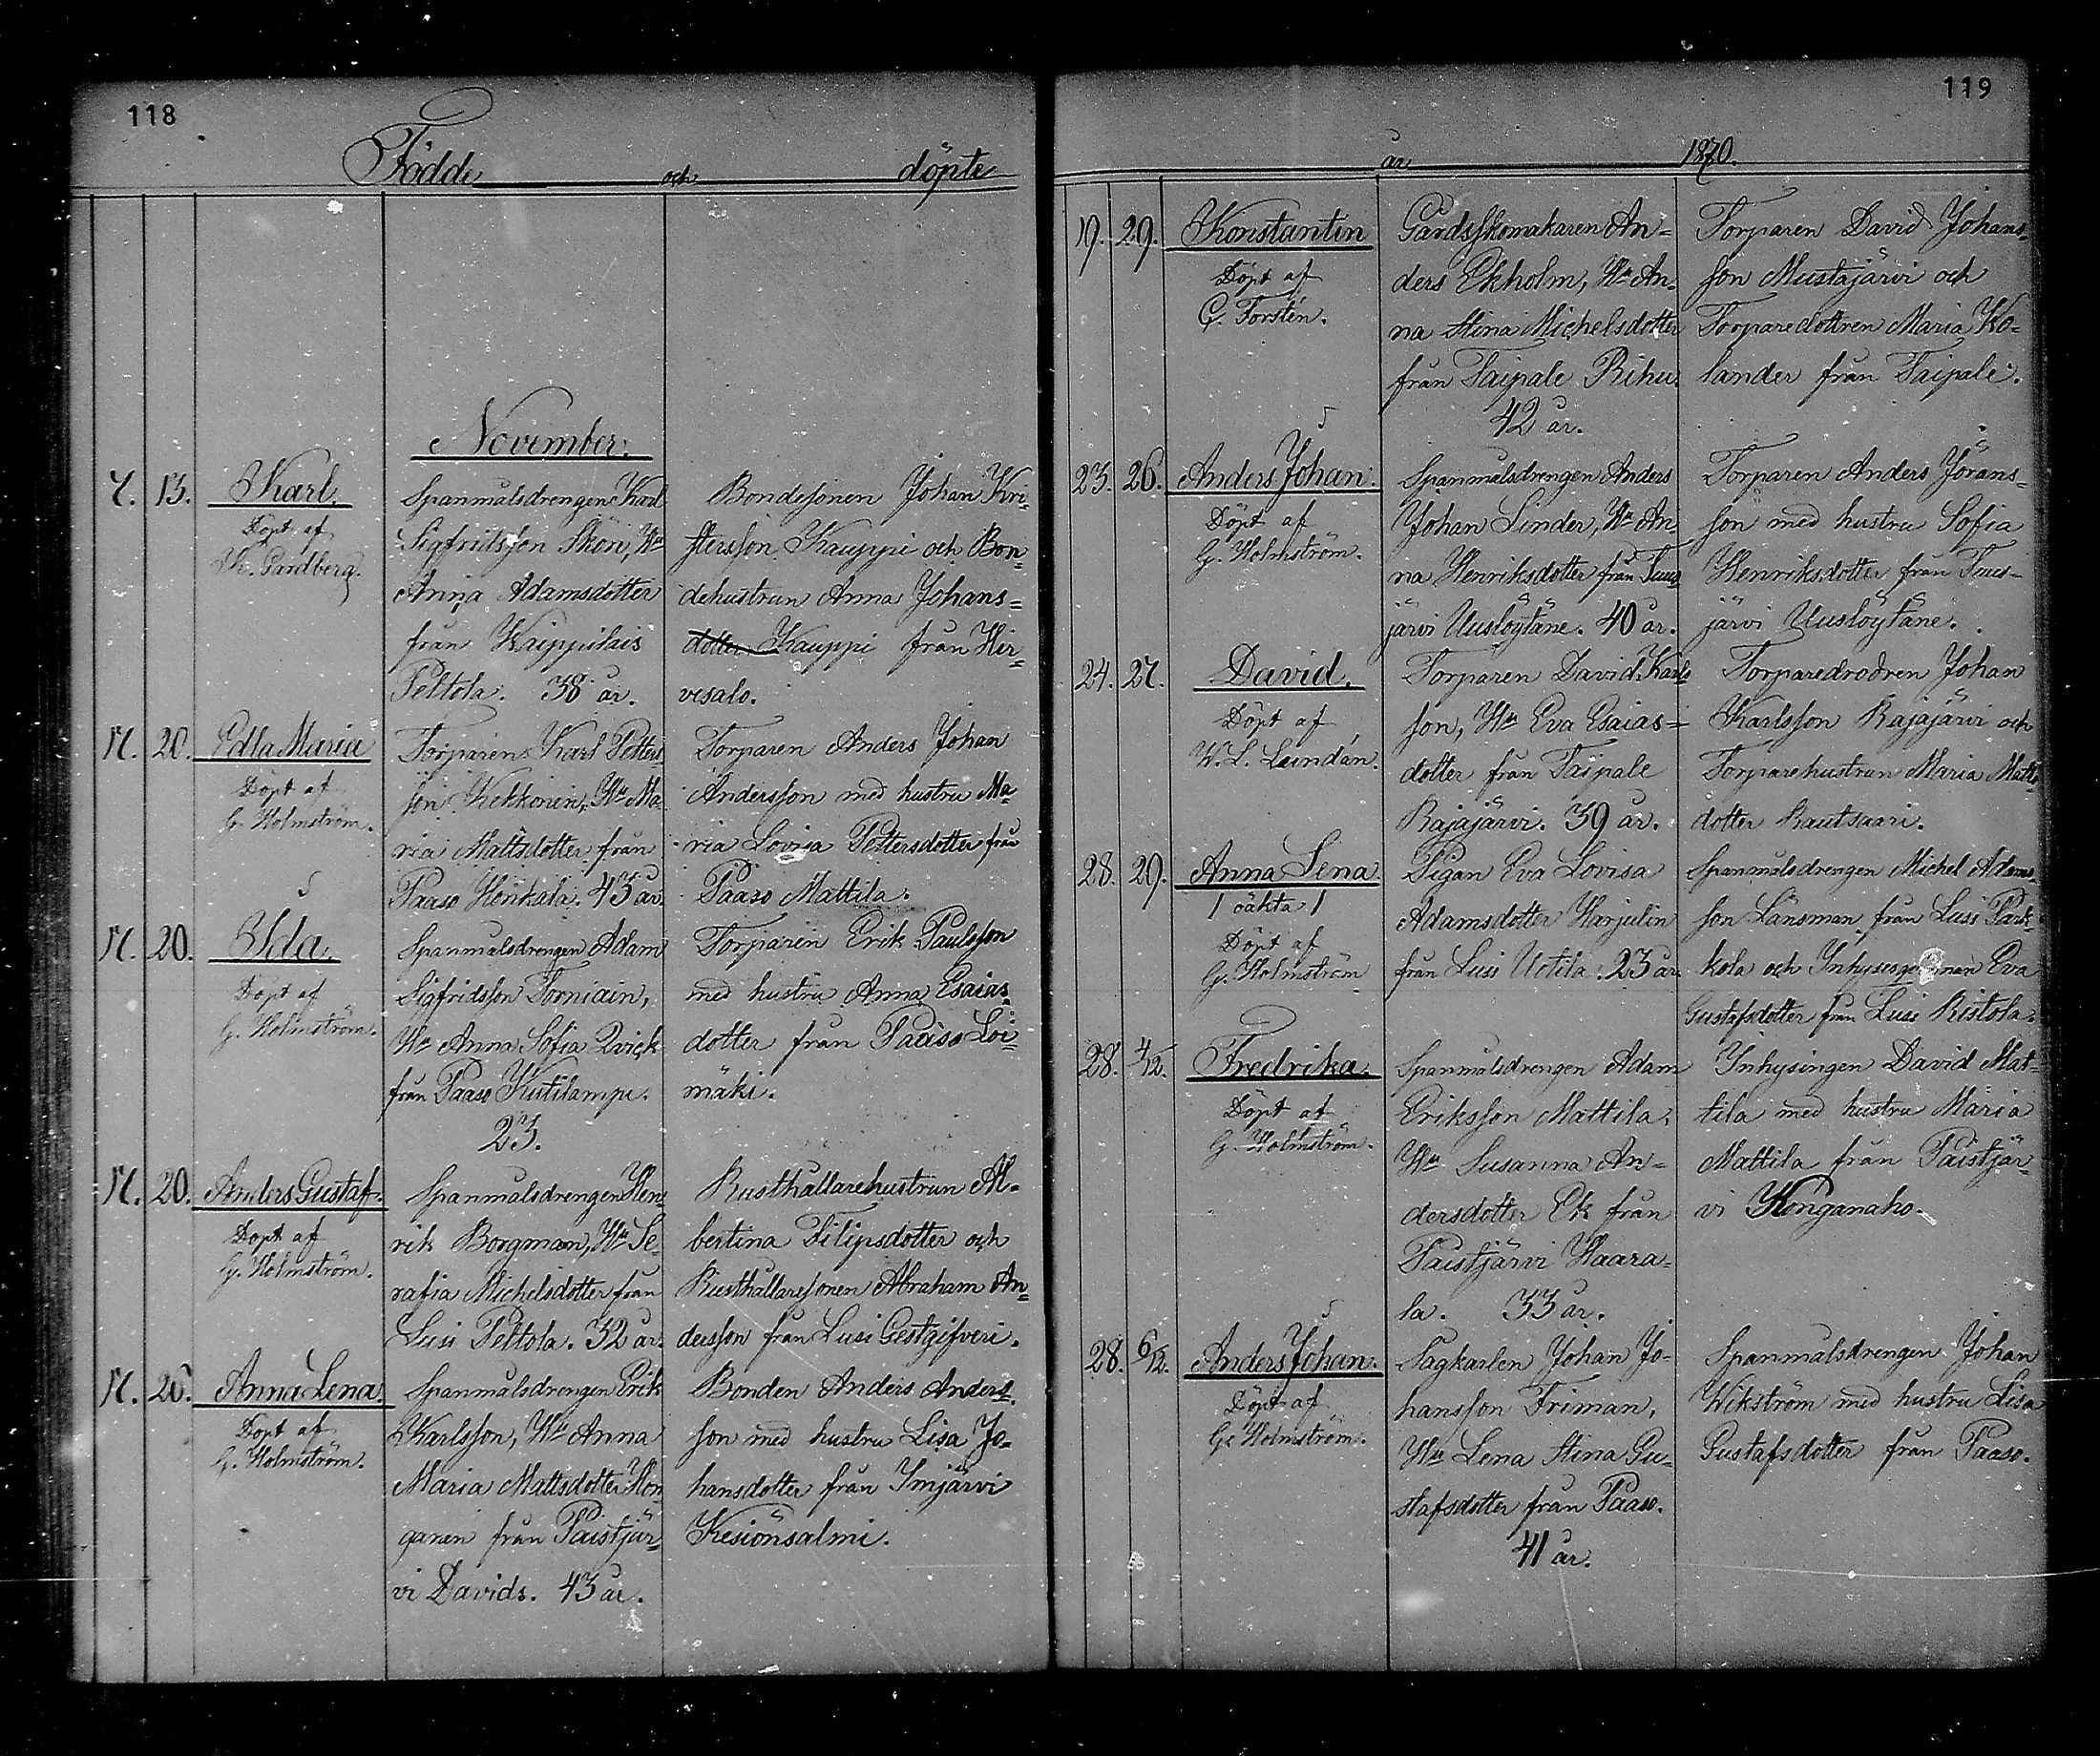 118
Födde och döpte
November.
7. 13. Karl.
Döpt af
Th. Grandberg.
Spanmålsdrengen Karl
Sigfridsson Skön, Hu
Anna Adamsdotter
från Kaippilais
Peltola. 38 år.
Bondesonen Johan Kri-
stersson Kauppi och Bon-
dehustrun Anna Johans-
dotter Kauppi från Hir-
vesalo.
11. 20. Edla Maria
Döpt af
G. Holmström.
Torparen Karl Petters-
son Kekkonen, Hu Ma-
ria Mattsdotter från
Paaso Honkala. 43 år.
Torparen Anders Johan
Andersson med hustru Ma-
ria Lovisa Pettersdotter från
Paaso Mattila.
11. 20. Ida.
Döpt af
G. Holmström.
Spanmålsdrengen Adam
Sigfridsson Torniain,
Hu Anna Sofia Qvick
från Paaso Kutilampi.
23.
Torparen Erik Paulsson
med hustru Anna Esaias-
dotter från Paaso Loi-
mäki.
11. 20. Anders Gustaf.
Döpt af
G. Holmström.
Spanmålsdrengen Hen-
rik Borgman, Hu Se-
rafia Michelsdotter från
Lusi Peltola. 32 år.
Rusthållarehustrun Al-
bertina Filipsdotter och
Rusthållaresonen Abraham An-
dersson från Lusi Gestgifveri.
11. 26. Anna Lena.
Döpt af
G. Holmström.
Spanmålsdrengen Erik
Karlsson, Hu Anna
Maria Mattsdotter Hon-
ganen från Paistjär-
vi Davids. 43 år.
Bonden Anders Anders-
son med hustru Lisa Jo-
hansdotter från Imjärvi
Kesiönsalmi.
119
år 1870.
19. 29. Konstantin
Döpt af
C. Forstén.
Gårdsskomakaren An-
ders Ekholm, Hu An-
na Stina Michelsdotter
från Taipale Rihu.
42 år.
Torparen David Johans-
son Mustajärvi och
Torparedottren Maria Ko-
lander från Taipale.
23. 26. Anders Johan.
Döpt af
G. Holmström.
Spanmålsdrengen Anders
Johan Linder, Hu An-
na Henriksdotter från Tuus-
järvi Uuslöytäne. 40 år.
Torparen Anders Jörans-
son med hustru Sofia
Henriksdotter från Tuus-
järvi Uuslöytäne.
24. 27. David.
Döpt af
W. L. Lundán.
Torparen David Karls-
son, Hu Eva Esaias-
dotter från Taipale
Rajajärvi. 39 år.
Torparedrodren Johan
Karlsson Rajajärvi och
Torparehustrun Maria Matts-
dotter Rautsaari.
28. 29. Anna Lena
/ oäkta /
Döpt af
G. Holmström
Pigan Eva Lovisa
Adamsdotter Harjulin
från Lusi Uotila. 23 år.
Spanmålsdrengen Michel Adams-
son Länsman från Lusi Park-
kola och Eva
Gustafsdotter från Lusi Ristola.
28. 4/12. Fredrika.
Döpt af
G. Holmström.
Spanmålsdrengen Adam
Eriksson Mattila,
Hu Susanna An-
dersdotter Ek från
Paistjärvi Haara-
la. 33 år.
Inhysingen David Mat-
tila med hustru Maria
Mattila från Paistjär-
vi Honganaho.
28. 6/12. Anders Johan.
Döpt af
G. Holmström.
Sagkarlen Johan Jo-
hansson Friman,
Hu Lena Stina Gu-
stafsdotter från Paaso.
41 år.
Spanmålsdrengen Johan
Wikström med hustru Lisa
Gustafsdotter från Paaso.